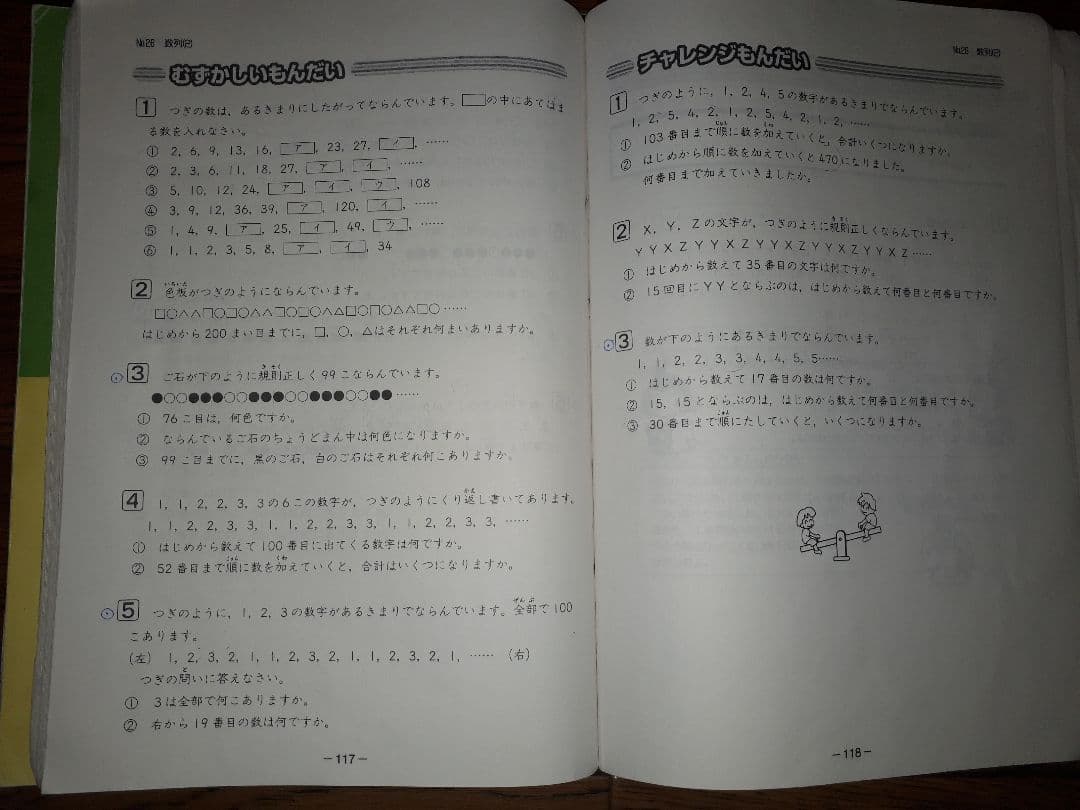 №26 数列(2)
むずかしいもんだい
1 つぎの数は、あるきまりにしたがってならんでいます。□の中にあてはま
る数を入れなさい。
① 2, 6, 9, 13, 16, ア, 23, 27, イ, ……
② 2, 3, 6, 11, 18, 27, ア, イ, ……
③ 5, 10, 12, 24, ア, イ, ウ, 108
④ 3, 9, 12, 36, 39, ア, 120, イ, ……
⑤ 1, 4, 9, ア, 25, イ, 49, ウ, ……
⑥ 1, 1, 2, 3, 5, 8, ア, イ, 34
2 色板がつぎのようにならんでいます。
□○△△□○□○△△□○□○△△□○□○△△□○……
はじめから200まい目までに、□、○、△はそれぞれ何まいありますか。
3 ご石が下のように規則正しく99こならんでいます。
●○○●●●○○●●●○○●●●○○●●……
① 76こ目は、何色ですか。
② ならんでいるご石のちょうどまん中は何色になりますか。
③ 99こ目までに、黒のご石、白のご石はそれぞれ何こありますか。
4 1, 1, 2, 2, 3, 3の6この数字が、つぎのようにくり返し書いてあります。
1, 1, 2, 2, 3, 3, 1, 1, 2, 2, 3, 3, 1, 1, 2, 2, 3, 3, ……
① はじめから数えて100番目に出てくる数字は何ですか。
② 52番目まで順に数を加えていくと、合計はいくつになりますか。
5 つぎのように、1, 2, 3の数字があるきまりでならんでいます。全部で100
こあります。
(左) 1, 2, 3, 2, 1, 1, 2, 3, 2, 1, 1, 2, 3, 2, 1, …… (右)
つぎの問いに答えなさい。
① 3は全部で何こありますか。
② 右から19番目の数は何ですか。
－117－
№26 数列(2)
チャレンジもんだい
1 つぎのように、1, 2, 4, 5の数字があるきまりでならんでいます。
1, 2, 5, 4, 2, 1, 2, 5, 4, 2, 1, 2, ……
① 103番目まで順に数を加えていくと、合計いくつになりますか。
② はじめから順に数を加えていくと470になりました。
何番目まで加えていきましたか。
2 X、Y、Zの文字が、つぎのように規則正しくならんでいます。
YYXZYYXZYYXZYYXZYYXZ……
① はじめから数えて35番目の文字は何ですか。
② 15回目にYYとならぶのは、はじめから数えて何番目と何番目ですか。
3 数が下のようにあるきまりでならんでいます。
1, 1, 2, 2, 3, 3, 4, 4, 5, 5……
① はじめから数えて17番目の数は何ですか。
② 15, 15とならぶのは、はじめから数えて何番目と何番目ですか。
③ 30番目まで順にたしていくと、いくつになりますか。
－118－